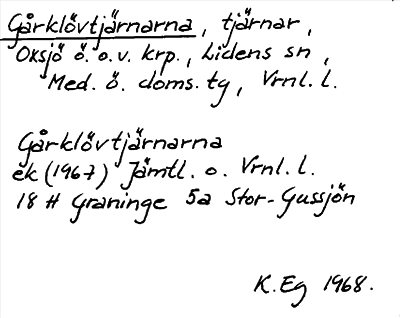 Gårklövtjärnarna, tjärnar,
Oksjö ö.o.v. krp., Lidens sn,
Med. ö. doms. tg, Vrnl. l.
Gårklövtjärnarna
ek (1967) Jämtl. o. Vrnl. l.
18 H Graninge 5a Stor-Gussjön
K. Eg 1968.